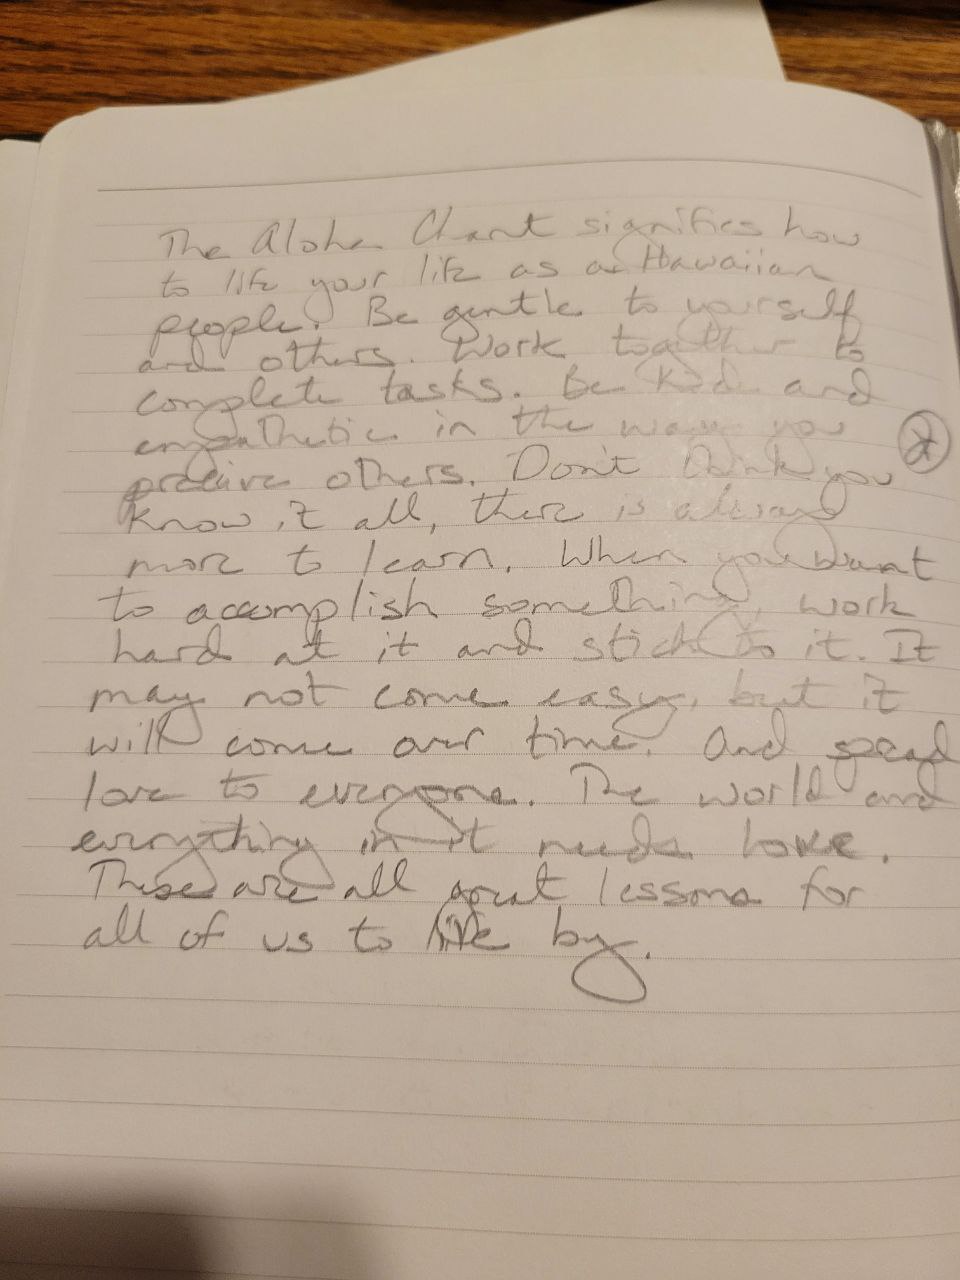 The Aloha Chant signifies how
to life your life as a Hawaiian
people. Be gentle to yourself
and others. Work together to
complete tasks. Be kind and
empathetic in the way you
preceive others. Don't think you
know it all, there is always
more to learn. When you want
to accomplish something, work
hard at it and stick to it. It
may not come easy, but it
will come over time. And spread
love to everyone. The world and
everything in it needs love.
These are all great lessons for
all of us to live by.